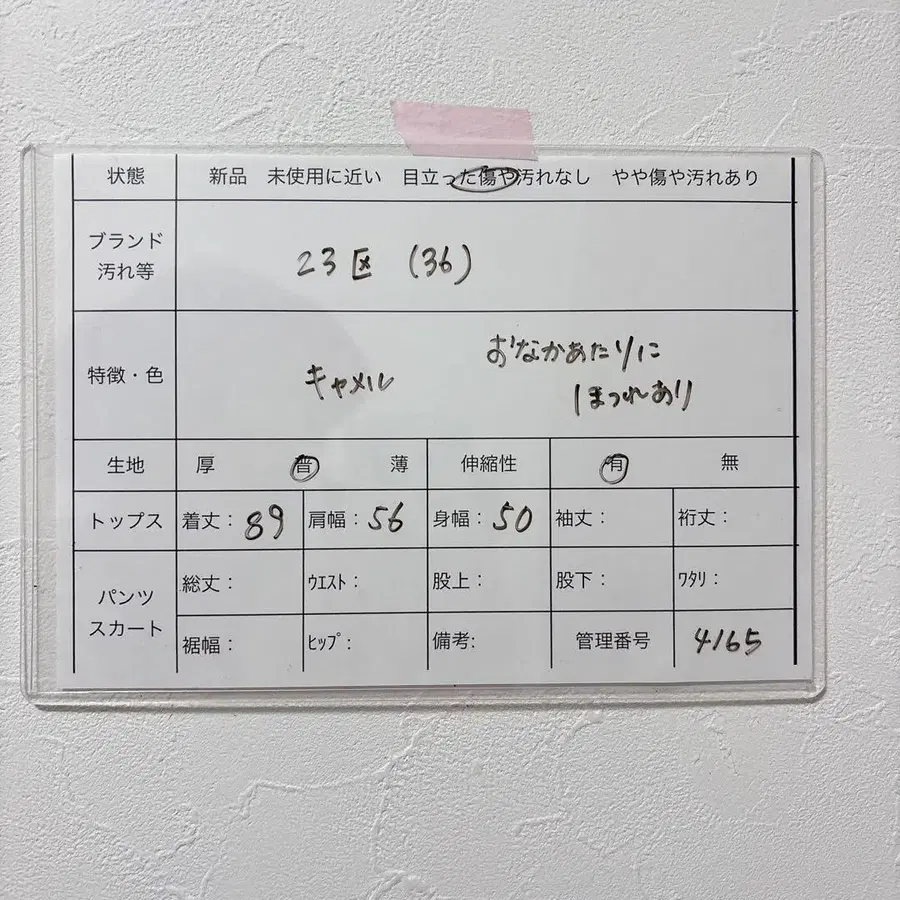 状態 新品 未使用に近い 目立った傷や汚れなし やや傷や汚れあり
ブランド
汚れ等
23区 (36)
特徴・色
キャメル
おなかあたりに
ほつれあり
生地 厚 普 薄 伸縮性 有 無
トップス 着丈： 89 肩幅： 56 身幅： 50 袖丈： 裄丈：
パンツ
スカート
総丈： ウエスト： 股上： 股下： ワタリ：
裾幅： ヒップ： 備考: 管理番号 4165